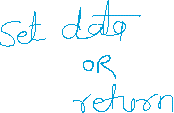 Set data
OR
return